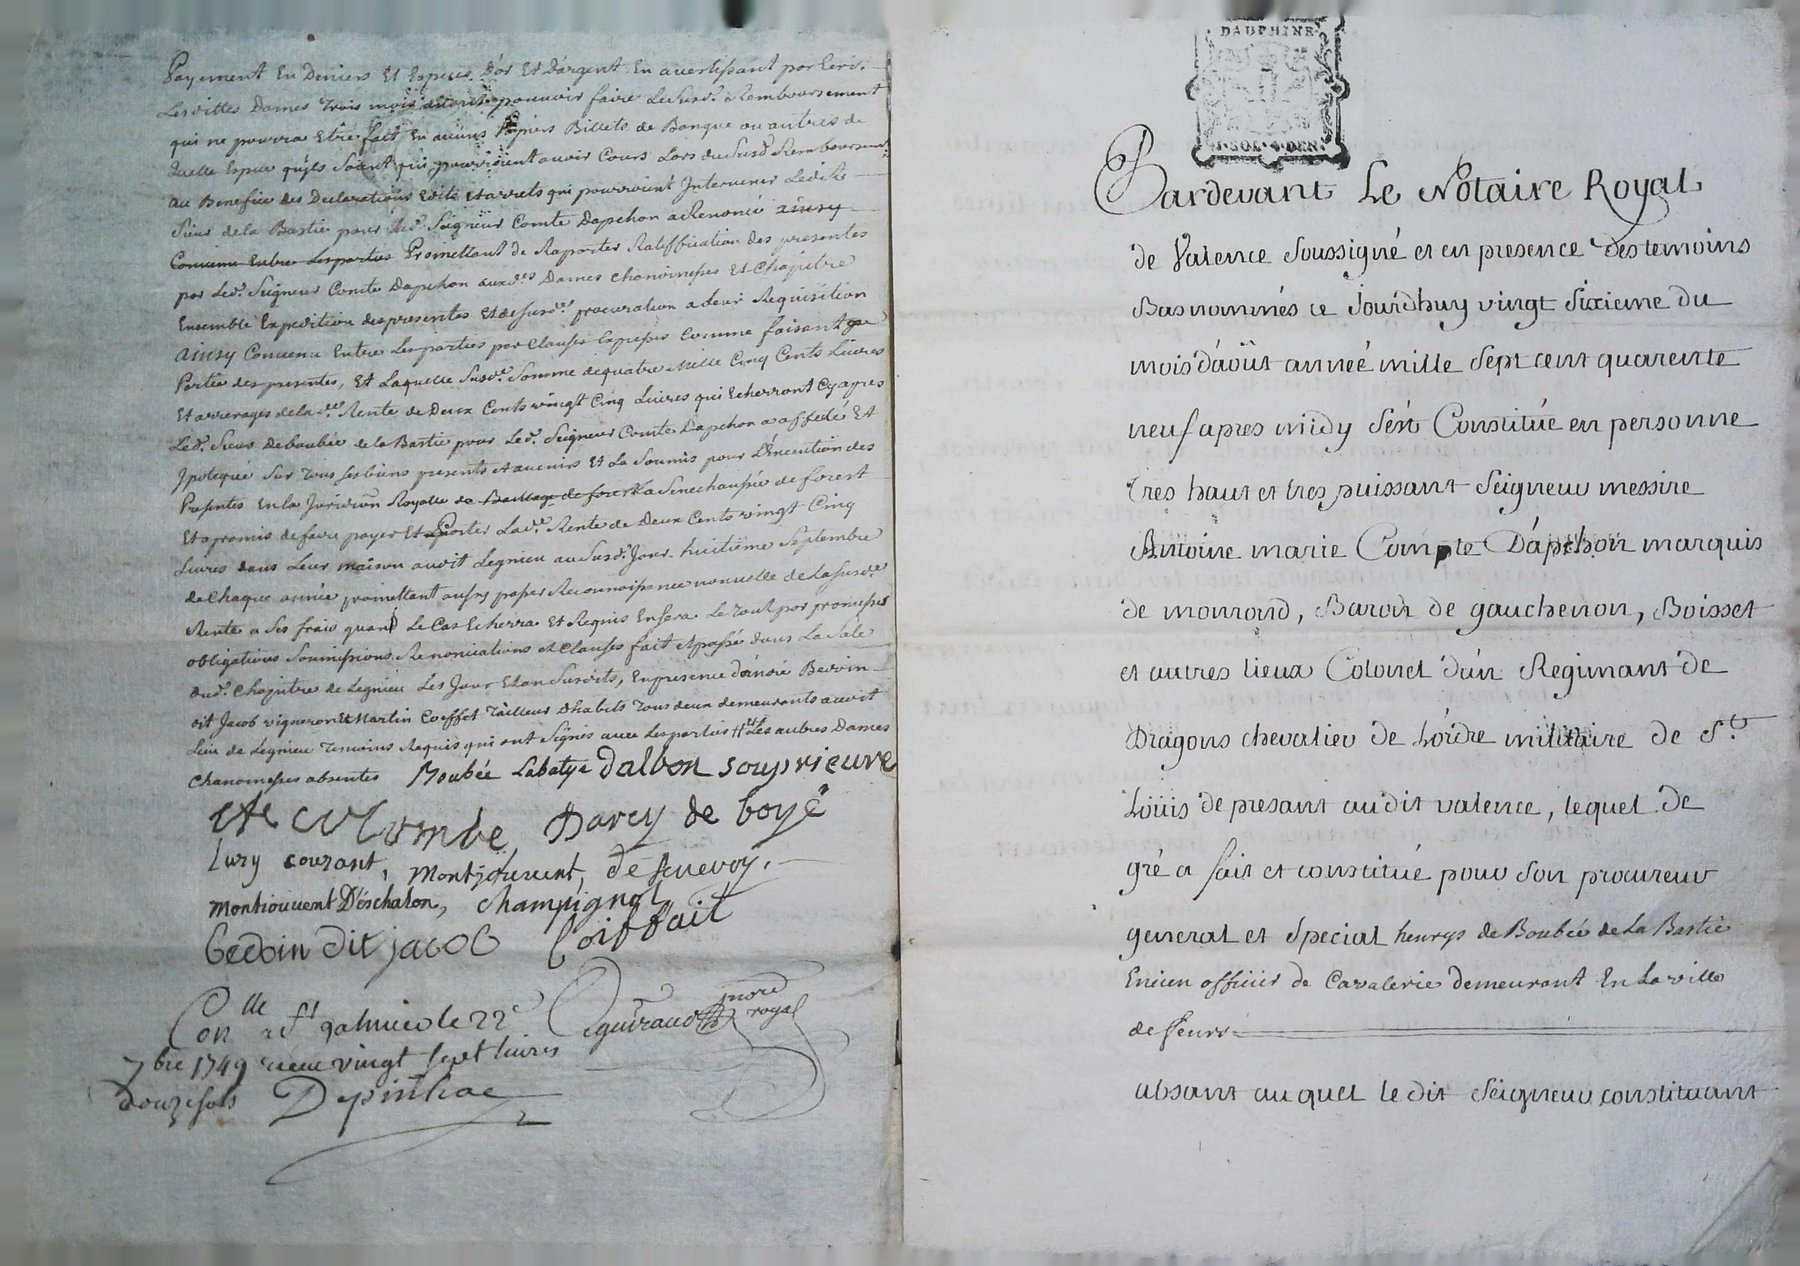 Payement En Deniers Et Especes D'or Et D'argent En avertissant par Ecrit
Lesdittes Dames Trois mois avant pouvoir faire Le Susd.t Remboursement
qui ne pourra Etre fait En aucuns Papiers Billets de Banque ou autres de
quelle Espece quils Soient qui pourroient avoir Cours Lors du Susd Remboursem.t
au Benefice des Declarations Edits et arrets qui pourroient Intervenir Ledit
Sieur de la Bastie pour led. Seigneur Comte Dapchon a Renoncé ainsy
Convenu Entre Les parties Promettant de Raporter Ratiffication des presentes
par Led.t Seigneur Comte Dapchon auxd.es Dames chanoinesses Et Chapitre
Ensemble Expedition des presentes Et de susd.e procuration a leur Requisition
ainsy Convenu Entre Les parties par Clauses Expresses Comme faisant
Partie des presentes, Et Laquelle Susd.e Somme de quatre Mille Cinq Cents Livres
Et arrerages de la d.e Rente de Deux Cents vingt Cinq Livres qui Echerront Cy apres
Led. Sieur De boubée de la Bastie pour Led.t Seigneur Comte Dapchon a affecté Et
Ipotequé Sur Tous Ses biens presents et avenirs Et La Soumis pour L'Execution des
Presentes En La Juridion Royalle de Baillage de forest a Senechaussée de forest
Et a promis de faire payer Et Porter La d.e Rente de Deux Cents vingt Cinq
Livres dans Leur maison audit Legnieu au Susd. Jour huitieme Septembre
de Chaque année promettant aussy passer Reconnoissance nouvelle de La susd.e
Rente a Ses frais quand Le Cas Echerra Et Requis En sera Le Tout par promesses
obligations Soumissions Renonciations et Clauses fait et passé dans La Sale
dud. Chapitre de Legnieu Les Jour Et an Susdits, En presence
dit Jacob vigneron Et Martin Coeffet Tailleur D'habits Tous deux demeurants audit
Lieu de Legnieu Temoins Requis qui ont Signés avec Les parties Et Les autres Dames
Chanoinesses absentes Boubée Labatye dalbon souprieure
Ste Colombe, Darcy de boyé
Lury courant, montjouvent, de
montiouvent D'eschalon, champignol
dit jacob Coiffait
Con.lle a s.t galmier le 22e
Eguiraud no.re royal
7bre 1749 receu vingt sept livres
douze sols Depinhac
DAUPHINÉ
1. SOL. 4. DEN.
Pardevant Le Notaire Royal
de Valence soussigné et en presence des temoins
bas nommés ce Jourdhuy vingt sixieme du
mois d'aöut année mille sept cent quarente
neuf apres midy s'ést Constitué en personne
tres haut et tres puissant Seigneur messire
Antoine marie Compte D'apchon marquis
de monrond, Baron de gauchenon, Boisset
et autres lieux Colonel d'ún Regimant de
Dragons chevalier de L'órdre militaire de S.t
Loüis de presant au dit valence, lequel de
gré a fait et constitué pour son procureur
general et special henrys de Boubée de La Bastie
Encien officier de Cavalerie demeurant En La ville
de feurs
absant au quel le dit Seigneur constituant